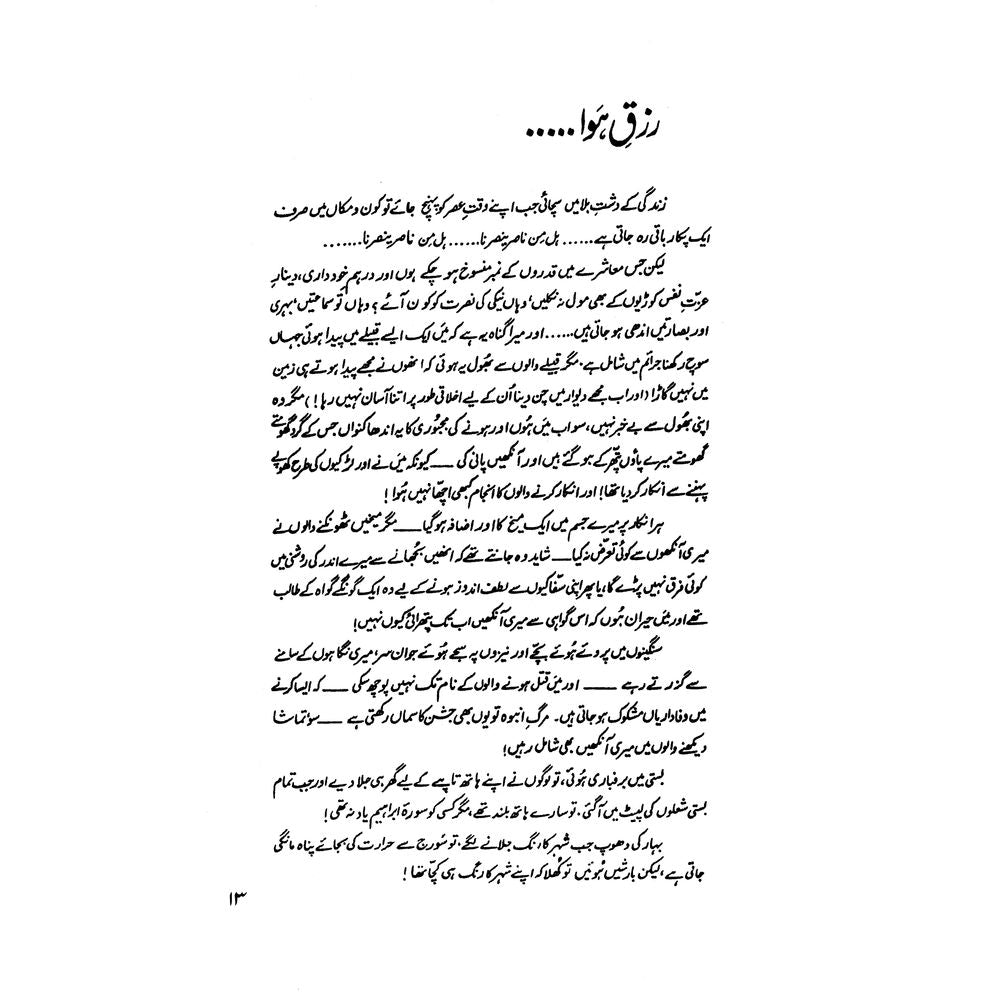 رزقِ ہَوا .....
زندگی کے دشتِ بلا میں سچائی جب اپنے وقتِ عصر کو پہنچ جائے تو کون و مکاں میں صرف
ایک پکار باقی رہ جاتی ہے...... ہل مِن ناصرٍ ینصرنا...... ہل مِن ناصرٍ ینصرنا.......
لیکن جس معاشرے میں قدروں کے نمبر منسوخ ہو چکے ہوں اور درہمِ خودداری، دینارِ
عزّتِ نفس کوڑیوں کے بھی مول نہ نکلیں، وہاں نیکی کی نصرت کو کون آئے؟ وہاں تو سماعتیں بہری
اور بصارتیں اندھی ہو جاتی ہیں...... اور میرا گناہ یہ ہے کہ میَں ایک ایسے قبیلے میں پیدا ہوئی جہاں
سوچ رکھنا جرائم میں شامل ہے۔ مگر قبیلے والوں سے بھُول یہ ہوئی کہ انھوں نے مجھے پیدا ہوتے ہی زمین
میں نہیں گاڑا (اور اب مجھے دیوار میں چُن دینا اُن کے لیے اخلاقی طور پر اتنا آسان نہیں رہا!) مگر وہ
اپنی بھُول سے بے خبر نہیں، سو اب میَں ہُوں اور ہونے کی مجبُوری کا یہ اندھا کنواں جس کے گرد گھومتے
گھومتے میرے پاؤں پتّھر کے ہو گئے ہیں اور آنکھیں پانی کی ـــ کیونکہ میَں نے اور لڑکیوں کی طرح کھوپے
پہننے سے انکار کر دیا تھا! اور انکار کرنے والوں کا انجام کبھی اچھّا نہیں ہُوا!
ہر انکار پر میرے جسم میں ایک میخ کا اور اضافہ ہو گیا ـــ مگر میخیں ٹھونکنے والوں نے
میری آنکھوں سے کوئی تعرّض نہ کیا ـــ شاید وہ جانتے تھے کہ انھیں بُجھانے سے میرے اندر کی روشنی میں
کوئی فرق نہیں پڑے گا، یا پھر اپنی سفّاکیوں سے لطف اندوز ہونے کے لیے وہ ایک گونگے گواہ کے طالب
تھے اور میَں حیران ہُوں کہ اس گواہی سے میری آنکھیں اب تک پتھرائیں کیوں نہیں!
سنگینوں میں پروئے ہُوئے بچّے اور نیزوں پہ سجے ہُوئے جوان سر، میری نگاہوں کے سامنے
سے گزرتے رہے ـــ اور میَں قتل ہونے والوں کے نام تک نہیں پوچھ سکی ـــ کہ ایسا کرنے
میں وفاداریاں مشکوک ہو جاتی ہیں۔ مرگِ انبوہ تو یوں بھی جشن کا سماں رکھتی ہے ـــ سو تماشا
دیکھنے والوں میں میری آنکھیں بھی شامل رہیں!
بستی میں برفباری ہُوئی، تو لوگوں نے اپنے ہاتھ تاپنے کے لیے گھر ہی جلا دیے اور جب تمام
بستی شعلوں کی لپیٹ میں آ گئی، تو سارے ہاتھ بلند تھے، مگر کسی کو سورۂ ابراہیم یاد نہ تھی!
بہار کی دھوپ جب شہر کا رنگ جلانے لگے، تو سُورج سے حرارت کی بجائے پناہ مانگی
جاتی ہے، لیکن بارشیں ہُوئیں تو کھُلا کہ اپنے شہر کا رنگ ہی کچّا تھا!
۱۳